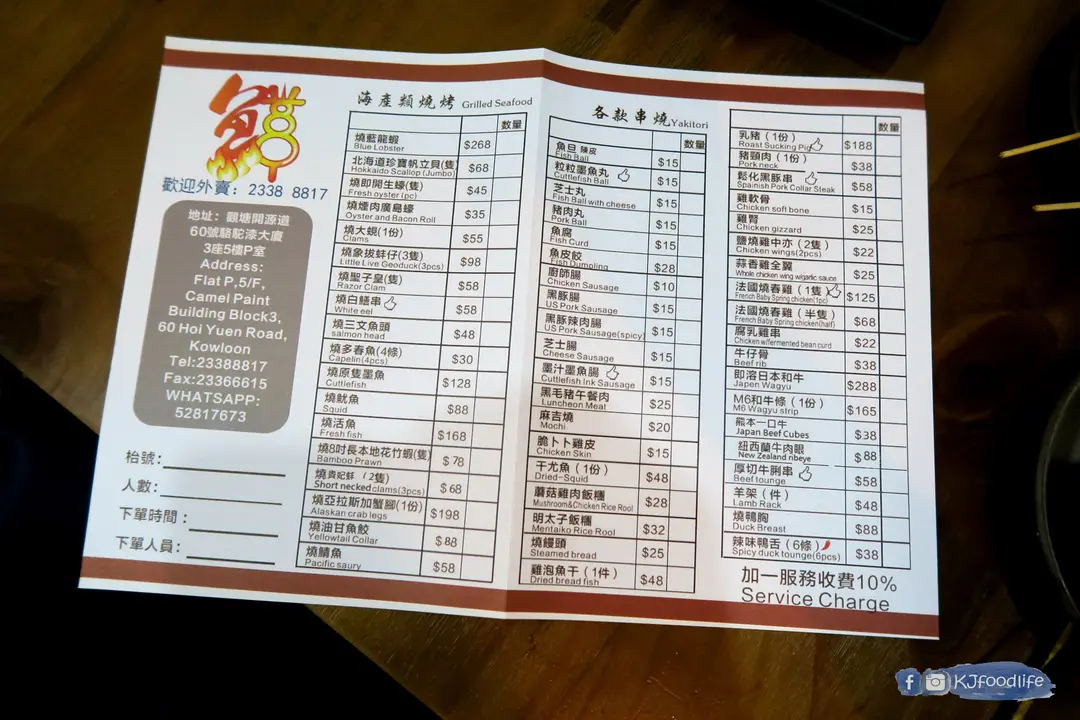 歡迎外賣：2338 8817
地址：觀塘開源道
60號駱駝漆大廈
3座5樓P室
Address:
Flat P,5/F,
Camel Paint
Building Block3,
60 Hoi Yuen Road,
Kowloon
Tel:23388817
Fax:23366615
WHATSAPP:
52817673
枱號：
人數：
下單時間：
下單人員：
海產類燒烤 Grilled Seafood
數量
燒藍龍蝦 $268
Blue Lobster
北海道珍寶帆立貝(隻) $68
Hokkaido Scallop (Jumbo)
燒即開生蠔(隻) $45
Fresh oyster(pc)
燒煙肉廣島蠔 $35
Oyster and Bacon Roll
燒大蜆(1份) $55
Clams
燒象拔蚌仔(3隻) $98
Little Live Geoduck(3pcs)
燒聖子皇(隻) $58
Razor Clam
燒白鱔串 $58
White eel
燒三文魚頭 $48
salmon head
燒多春魚(4條) $30
Capelin(4pcs)
燒原隻墨魚 $128
Cuttlefish
燒魷魚 $88
Squid
燒活魚 $168
Fresh fish
燒8吋長本地花竹蝦(隻) $78
Bamboo Prawn
燒貴妃蚌（2隻） $68
Short necked clams(3pcs)
燒亞拉斯加蟹腳(1份) $198
Alaskan crab legs
燒油甘魚鮫 $88
Yellowtail Collar
燒鯖魚 $58
Pacific saury
各款串燒 Yakitori
數量
魚旦 辣皮 $15
Fish Ball
粒粒墨魚丸 $15
Cuttlefish Ball
芝士丸 $15
Fish Ball with cheese
豬肉丸 $15
Pork Ball
魚腐 $15
Fish Curd
魚皮餃 $28
Fish Dumpling
廚師腸 $10
Chicken Sausage
黑豚腸 $15
US Pork Sausage
黑豚辣肉腸 $15
US Pork Sausage(spicy)
芝士腸 $15
Cheese Sausage
墨汁墨魚腸 $15
Cuttlefish Ink Sausage
黑毛豬午餐肉 $25
Luncheon Meat
麻吉燒 $20
Mochi
脆卜卜雞皮 $15
Chicken Skin
干尤魚（1份） $48
Dried-Squid
蘑菇雞肉飯糰 $28
Mushroom&Chicken Rice Rool
明太子飯糰 $32
Mentaiko Rice Rool
燒饅頭 $25
Steamed bread
雞泡魚干（1件） $48
Dried bread fish
數量
乳豬（1份） $188
Roast Sucking Pig
豬頸肉（1份） $38
Pork neck
鬆化黑豚串 $58
Spainish Pork Collar Steak
雞軟骨 $15
Chicken soft bone
雞腎 $25
Chicken gizzard
鹽燒雞中亦（2隻） $22
Chicken wings(2pcs)
蒜香雞全翼 $25
Whole chicken wing w/garlic sauce
法國燒春雞（1隻） $125
French Baby Spring chicken(1pc)
法國燒春雞（半隻） $68
French Baby Spring chicken(half)
腐乳雞串 $22
Chicken w/fermented bean curd
牛仔骨 $38
Beef rib
即溶日本和牛 $288
Japen Wagyu
M6和牛條（1份） $165
M6 Wagyu strip
熊本一口牛 $38
Japan Beef Cubes
紐西蘭牛肉眼 $88
New Zealand ribeye
厚切牛脷串 $58
Beef tounge
羊架（件） $48
Lamb Rack
燒鴨胸 $88
Duck Breast
辣味鴨舌（6條） $38
Spicy duck tounge(6pcs)
加一服務收費10%
Service Charge
KJfoodlife